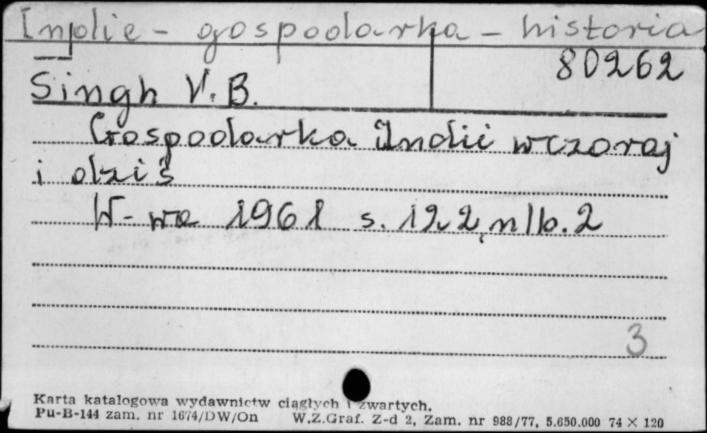 Indie - gospodarka - historia
80262
Singh V. B.
Gospodarka Indii wczoraj
i dziś
W-wa 1961 s. 122, nlb. 2
3
Karta katalogowa wydawnictw ciągłych i zwartych.
Pu-B-144 zam. nr 1674/DW/On W.Z.Graf. Z-d 2, Zam. nr 988/77, 5.650.000 74 X 120